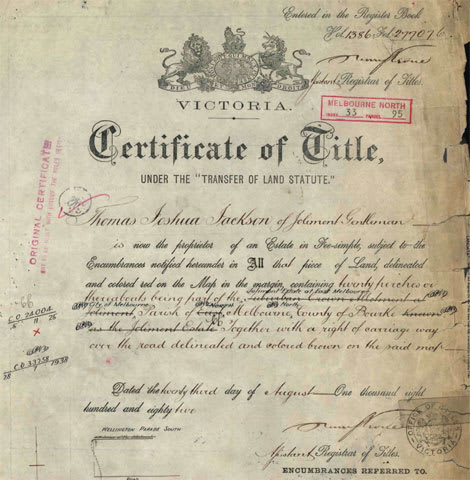 Entered in the Register Book
Vol. 1386 Fol. 277076
Assistant Registrar of Titles.
VICTORIA.
MELBOURNE NORTH
INDEX 33 PARCEL 95
Certificate of Title,
UNDER THE "TRANSFER OF LAND STATUTE."
ORIGINAL CERTIFICATE
Thomas Joshua Jackson of Jolimont Gentleman
is now the proprietor of an Estate in Fee-simple, subject to the
Encumbrances notified hereunder in All that piece of Land, delineated
and colored red on the Map in the margin, containing twenty perches or
thereabouts being part of the Suburban Crown Allotment at
City of Melbourne
Jolimont, Parish of Melbourne, County of Bourke known
as the Jolimont Estate Together with a right of carriage way
over the road delineated and colored brown on the said map
C.D. 24004
C.D. 33258
1938
Dated the twenty third day of August One thousand eight
hundred and eighty two
WELLINGTON PARADE SOUTH
VICTORIA
Assistant Registrar of Titles.
ENCUMBRANCES REFERRED TO.